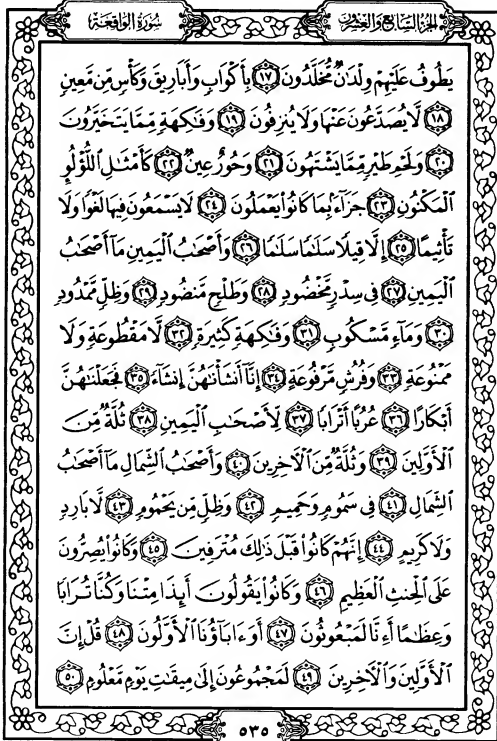 الجزء السابع والعشرون
سورة الواقعة
يَطُوفُ عَلَيْهِمْ وِلْدَٰنٌ مُّخَلَّدُونَ ١٧ بِأَكْوَابٍ وَأَبَارِيقَ وَكَأْسٍ مِّن مَّعِينٍ
١٨ لَّا يُصَدَّعُونَ عَنْهَا وَلَا يُنزِفُونَ ١٩ وَفَٰكِهَةٍ مِّمَّا يَتَخَيَّرُونَ
٢٠ وَلَحْمِ طَيْرٍ مِّمَّا يَشْتَهُونَ ٢١ وَحُورٌ عِينٌ ٢٢ كَأَمْثَٰلِ اللُّؤْلُوِٕ
الْمَكْنُونِ ٢٣ جَزَآءًۢ بِمَا كَانُوا۟ يَعْمَلُونَ ٢٤ لَا يَسْمَعُونَ فِيهَا لَغْوًا وَلَا
تَأْثِيمًا ٢٥ إِلَّا قِيلًا سَلَٰمًا سَلَٰمًا ٢٦ وَأَصْحَٰبُ الْيَمِينِ مَآ أَصْحَٰبُ
الْيَمِينِ ٢٧ فِى سِدْرٍ مَّخْضُودٍ ٢٨ وَطَلْحٍ مَّنضُودٍ ٢٩ وَظِلٍّ مَّمْدُودٍ
٣٠ وَمَآءٍ مَّسْكُوبٍ ٣١ وَفَٰكِهَةٍ كَثِيرَةٍ ٣٢ لَّا مَقْطُوعَةٍ وَلَا
مَمْنُوعَةٍ ٣٣ وَفُرُشٍ مَّرْفُوعَةٍ ٣٤ إِنَّآ أَنشَأْنَٰهُنَّ إِنشَآءً ٣٥ فَجَعَلْنَٰهُنَّ
أَبْكَارًا ٣٦ عُرُبًا أَتْرَابًا ٣٧ لِّأَصْحَٰبِ الْيَمِينِ ٣٨ ثُلَّةٌ مِّنَ
الْأَوَّلِينَ ٣٩ وَثُلَّةٌ مِّنَ الْآخِرِينَ ٤٠ وَأَصْحَٰبُ الشِّمَالِ مَآ أَصْحَٰبُ
الشِّمَالِ ٤١ فِى سَمُومٍ وَحَمِيمٍ ٤٢ وَظِلٍّ مِّن يَحْمُومٍ ٤٣ لَّا بَارِدٍ
وَلَا كَرِيمٍ ٤٤ إِنَّهُمْ كَانُوا۟ قَبْلَ ذَٰلِكَ مُتْرَفِينَ ٤٥ وَكَانُوا۟ يُصِرُّونَ
عَلَى الْحِنثِ الْعَظِيمِ ٤٦ وَكَانُوا۟ يَقُولُونَ أَئِذَا مِتْنَا وَكُنَّا تُرَابًا
وَعِظَٰمًا أَءِنَّا لَمَبْعُوثُونَ ٤٧ أَوَءَابَآؤُنَا الْأَوَّلُونَ ٤٨ قُلْ إِنَّ
الْأَوَّلِينَ وَالْآخِرِينَ ٤٩ لَمَجْمُوعُونَ إِلَىٰ مِيقَٰتِ يَوْمٍ مَّعْلُومٍ ٥٠
٥٣٥